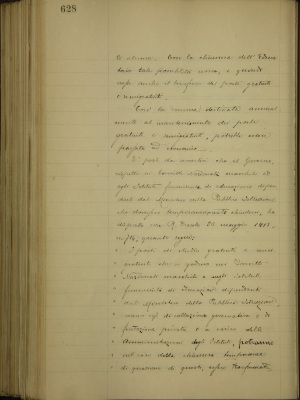 628
le alunne. Con la chiusura dell'
tale possibilità cessa, e quindi
cessa anche il beneficio dei posti gratuiti
o semigratuiti.
Così la somma destinata annual
mente al mantenimento dei posti
gratuiti e semigratuiti, potrebbe essere
È però da avvertire che il Governo,
rispetto ai Convitti Nazionali maschili ed
agli Istituti femminili di educazione dipen
denti dal Ministero della Pubblica Istruzione
che dovessero temporaneamente chiudersi, ha
disposto con R. Decreto 23 maggio 1915,
quanto segue:
" I posti di studio gratuiti o semi
" gratuiti che si godono nei Convitti
" Nazionali maschili e negli Istituti
" femminili di educazione dipendenti
" dal Ministero della Pubblica Istruzione
" siano essi di collazione governativa o di
" fondazione privata o a carico delle
" Amministrazioni degli Istituti, potranno
" nel caso della chiusura temporanea
" di qualcuno di questi, essere trasformati